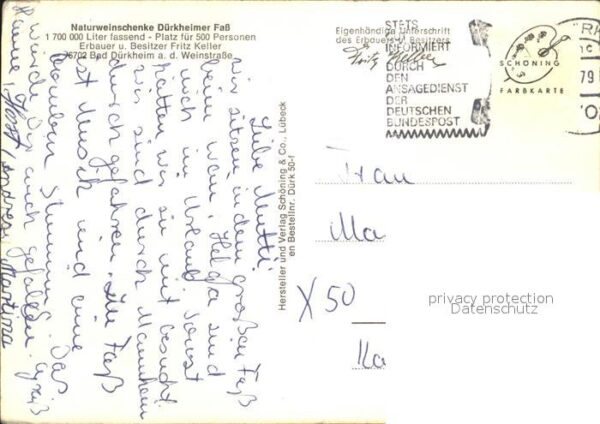 Naturweinschenke Dürkheimer Faß
1 700 000 Liter fassend - Platz für 500 Personen
Erbauer u. Besitzer Fritz Keller
6702 Bad Dürkheim a. d. Weinstraße
Eigenhändige Unterschrift
des Erbauers u. Besitzers
Fritz Keller
STETS
INFORMIERT
DURCH
DEN
ANSAGEDIENST
DER
DEUTSCHEN
BUNDESPOST
SCHÖNING
FARBKARTE
79
Liebe Mutti!
wir sitzen in dem großen Faß
beim Wein. Helga sind
noch im Urlaub. Sonst
hätten wir sie mit besucht.
wir sind durch Mannheim
durchgefahren. Im Faß
ist Musik und eine
Stimmung. Das
würde Dir auch gefallen.
Hanne, Horst, Andreas, Martina
Hersteller und Verlag Schöning & Co., Lübeck
en Bestellnr. Dürk 50-f
Frau
Ma
X 50
privacy protection
Datenschutz